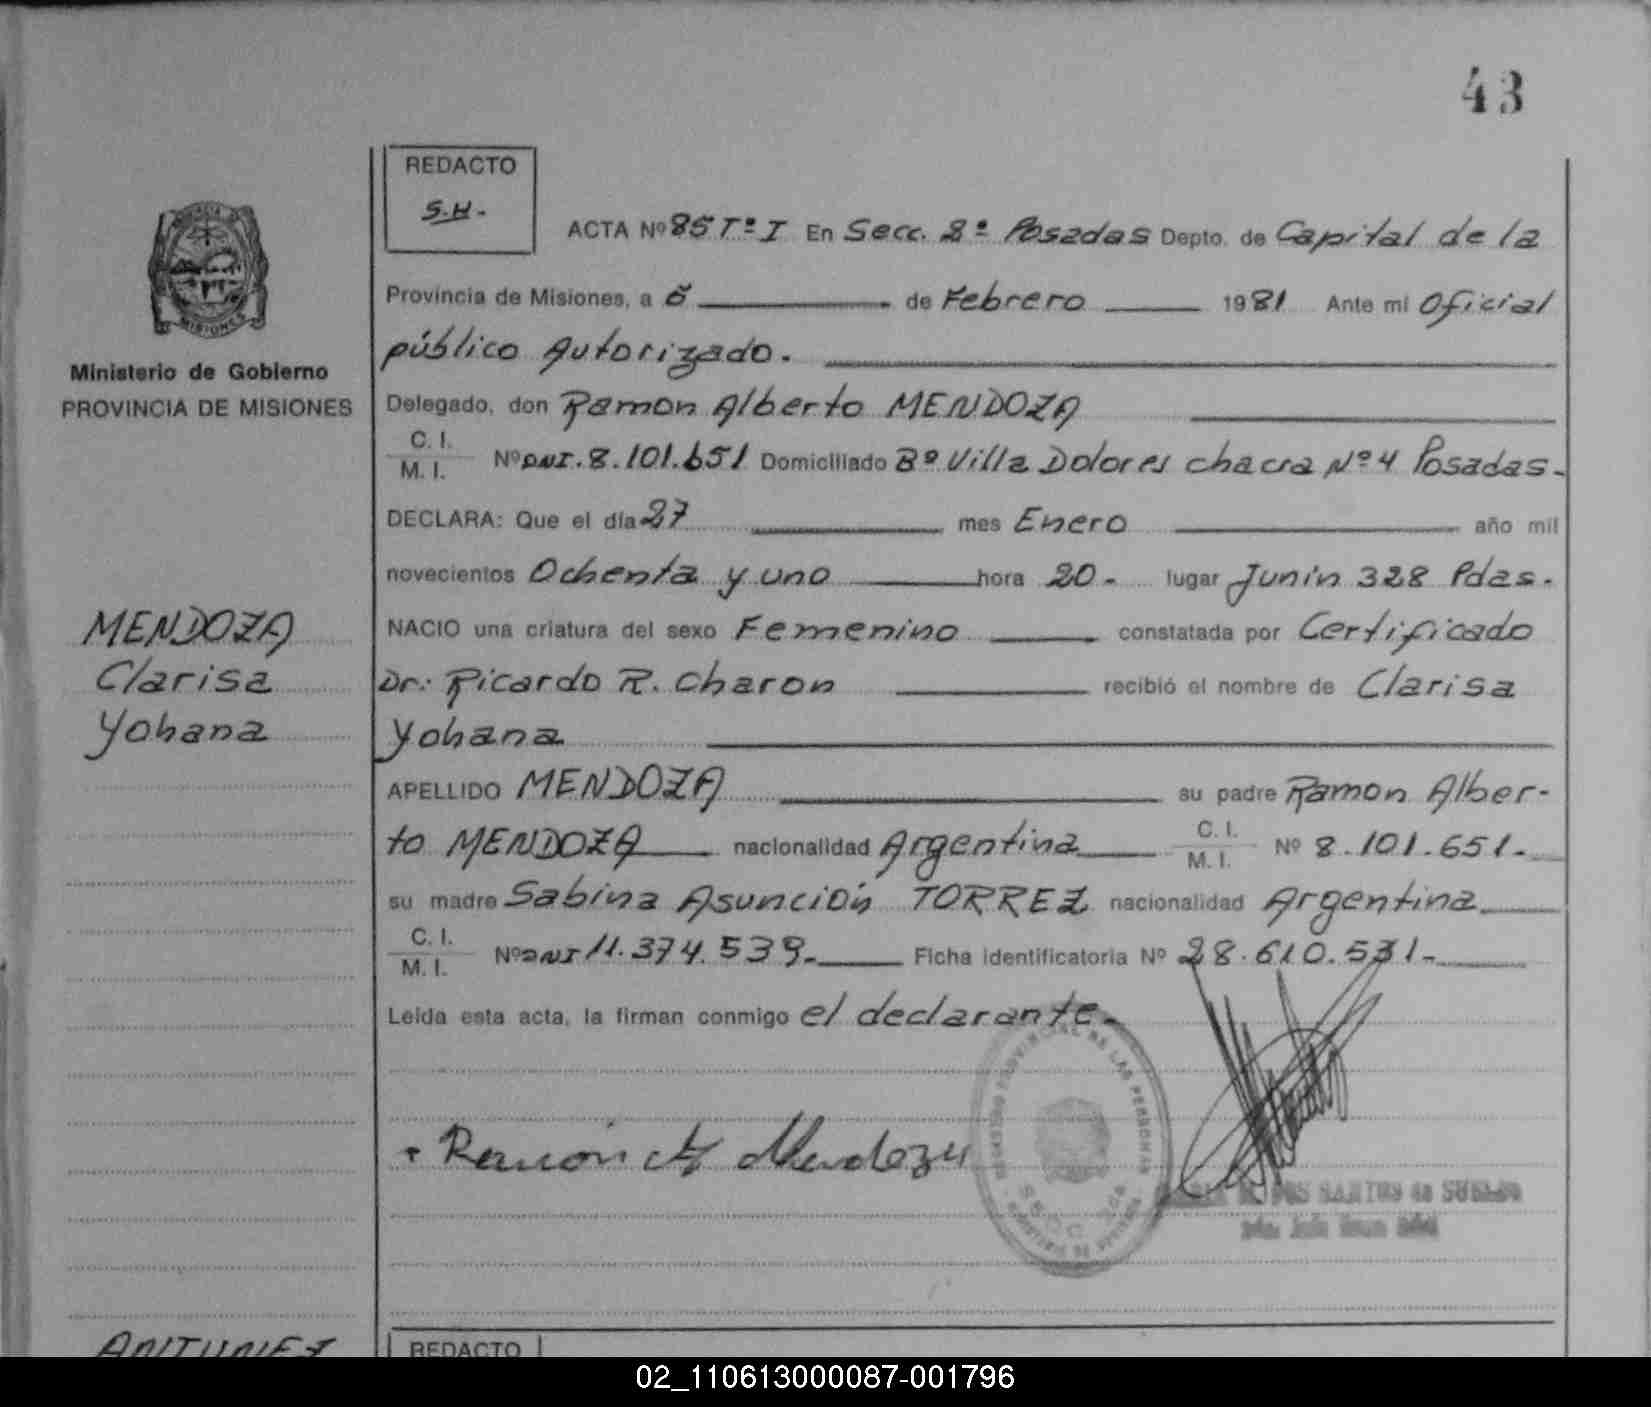 43
REDACTO
S.H.-
ACTA Nº 85 Tº I En Secc. 2ª Posadas Depto. de Capital de la
Provincia de Misiones, a 6 de Febrero 1981 Ante mi Oficial
público Autorizado.
Ministerio de Gobierno
PROVINCIA DE MISIONES
Delegado, don Ramon Alberto MENDOZA
C. I.
M. I. Nº DNI. 8.101.651 Domiciliado Bº Villa Dolores chacra Nº 4 Posadas.
DECLARA: Que el día 27 mes Enero año mil
novecientos Ochenta y uno hora 20.- lugar Junin 328 Pdas.
NACIO una criatura del sexo Femenino constatada por Certificado
Dr: Ricardo R. Charon recibió el nombre de Clarisa
Yohana
MENDOZA
Clarisa
Yohana
APELLIDO MENDOZA su padre Ramon Alber-
to MENDOZA nacionalidad Argentina C. I. M. I. Nº 8.101.651.-
su madre Sabina Asunción TORREZ nacionalidad Argentina
C. I.
M. I. Nº DNI 11.374.539.- Ficha identificatoria Nº 28.610.531.-
Leida esta acta, la firman conmigo el declarante.
Ramón A Mendoza
PROVINCIAL DE LAS PERSONAS
SANTOS de
ANTUNEZ
REDACTO
02_110613000087-001796